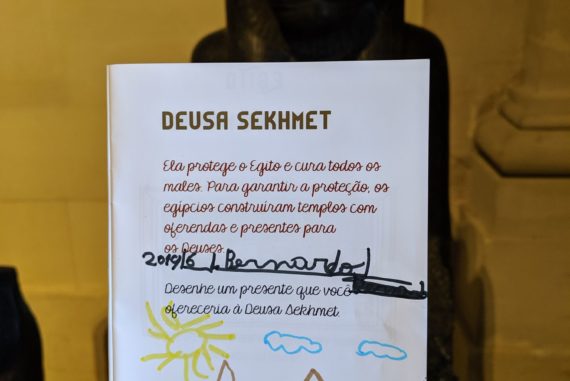 DEUSA SEKHMET
Ela protege o Egito e cura todos os
males. Para garantir a proteção, os
egípcios construíram templos com
oferendas e presentes para
os Deuses
Bernardo
Desenhe um presente que você
ofereceria à Deusa Sekhmet.